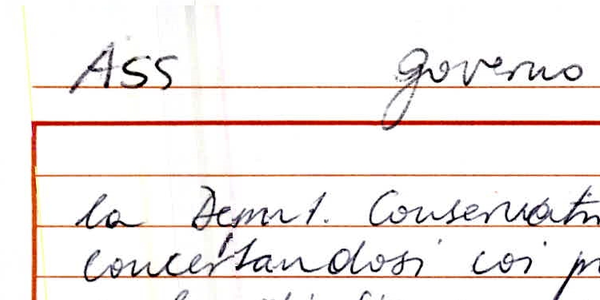 Ass Governo
la Deput. Conservatr
concertandosi coi pr